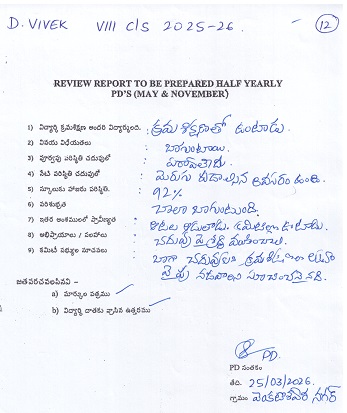 D. VIVEK VIII C/S 2025-26. 12
REVIEW REPORT TO BE PREPARED HALF YEARLY
PD'S (MAY & NOVEMBER)
1) విద్యార్థి క్రమశిక్షణ అందరి విద్యార్థులలో. : క్రమ శిక్షణతో ఉంటాడు.
2) వినయ విధేయతలు : బాగుంటాయి.
3) పూర్వపు పరిస్థితి చదువులో : పరవాలేదు.
4) నేటి పరిస్థితి చదువులో : మెరుగు పడాల్సిన అవసరం ఉంది.
5) స్కూలుకు హాజరు పరిస్థితి. : 92%
6) పరిశుభ్రత : చాలా బాగుంటుంది.
7) ఇతర అంశములలో ప్రావీణ్యత : ఆటలు ఆడుతాడు.
8) అభిప్రాయాలు / సలహాలు : చదువు పై శ్రద్ధ వహించాలి.
9) కమిటీ సభ్యుల సూచనలు : బాగా చదువుకుని క్రమశిక్షణ
వైపు నడవాలని సూచించనైనది.
జతపరచవలసినవి -
a) మార్కుల పత్రము
b) విద్యార్థి దాతకు వ్రాసిన ఉత్తరము
PD.
PD సంతకం
తేది. 25/03/2026.
గ్రామం వెంకటేశ్వర నగర్